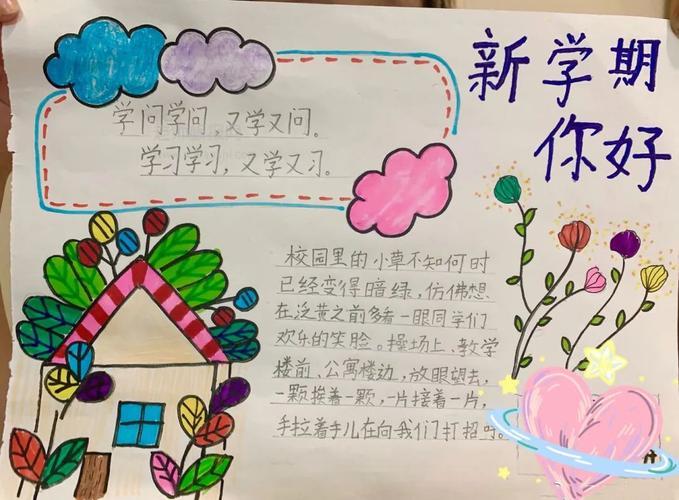 新学期
你好
学问学问,又学又问。
学习学习,又学又习。
校园里的小草不知何时
已经变得暗绿,仿佛想
在泛黄之前多看一眼同学们
欢乐的笑脸。操场上、教学
楼前、公寓楼边,放眼望去,
一颗挨着一颗,一片接着一片,
手拉着手儿在向我们打招呼。